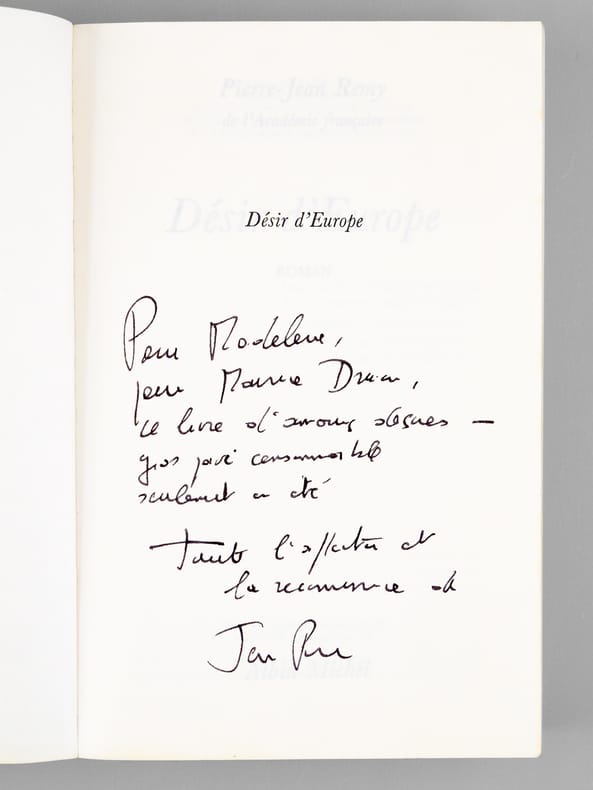 Pierre-Jean Remy
de l'Académie française
Désir d'Europe
Désir d'Europe
ROMAN
Pour Madeleine,
pour Maurice Druon,
ce livre d'amours –
gros pavé consommable
seulement en été
Toute l'affection et
la reconnaissance de
Jean Pierre
Albin Michel